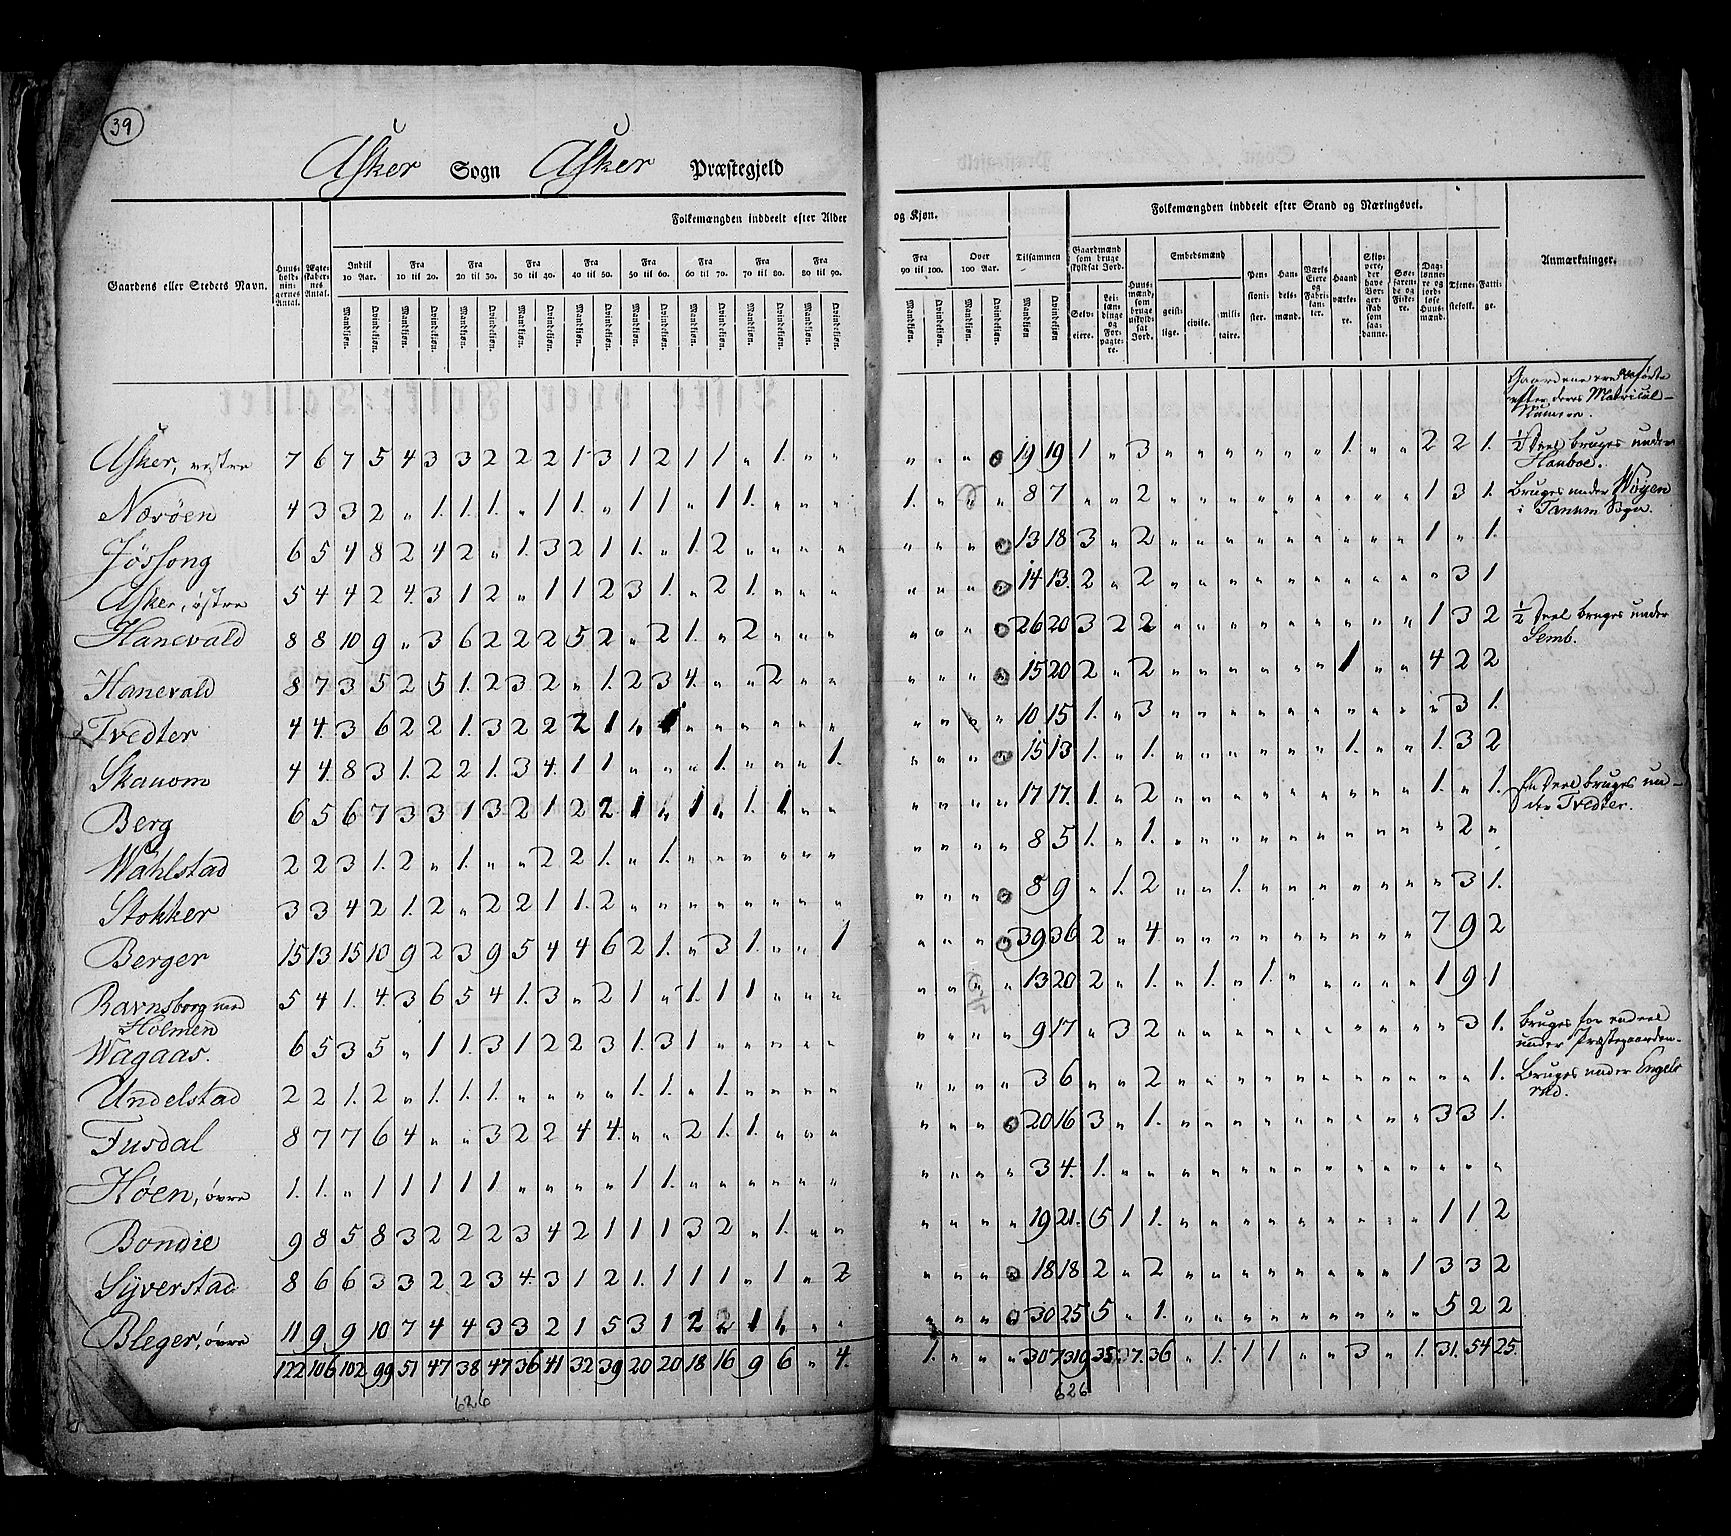 39
Asker Sogn Asker Præstegjeld
Gaardens eller Stedets Navn.
Huus-holdnin-gernes Antal.
Ægte-skaber-nes Antal.
Folkemængden inddeelt efter Alder
og Kjøn.
Indtil 10 Aar. Fra 10 til 20. Fra 20 til 30. Fra 30 til 40. Fra 40 til 50. Fra 50 til 60. Fra 60 til 70. Fra 70 til 80. Fra 80 til 90.
Fra 90 til 100. Over 100 Aar. Tilsammen
Mandkjøn. Qvindekjøn. Mandkjøn. Qvindekjøn. Mandkjøn. Qvindekjøn. Mandkjøn. Qvindekjøn. Mandkjøn. Qvindekjøn. Mandkjøn. Qvindekjøn. Mandkjøn. Qvindekjøn. Mandkjøn. Qvindekjøn. Mandkjøn. Qvindekjøn.
Mandkjøn. Qvindekjøn. Mandkjøn. Qvindekjøn. Mandkjøn. Qvindekjøn.
Folkemængden inddeelt efter Stand og Næringsvei.
Gaardmænd som bruge skyldsat Jord.
Selv-eiere.
Lei-lændinge og For-pagte-re.
Huus-mænd, som bruge uskyld-sat Jord.
Embedsmænd
geist-lige. civile. mili-taire.
Pen-sioni-ster.
Han-dels-mænd.
Værks Eiere og Fabri-kan-ter.
Haand værke-re.
Skip-pere, der have Bor-ger-skab som saa-danne.
Søe-faren-de og Fiske-re.
Dag-lønne-re og jord-løse Huus-mænd.
Tjene-stefolk.
Fatti-ge.
Anmærkninger.
Gaardene ere anførte
efter deres Matricul-
Numere.
Asker, vestre 7 6 7 5 4 3 3 2 2 2 2 1 3 1 2 1 1 " 1. " " " " " " 19 19 1 " 3 " " " " " " 1. " " 2 2 1. ½ Deel bruges under
Hauboe.
Noröen 4 3 3 2 " 1. 1. 1. " 1 1. " 1 1. " 1 1. " " " 1. " " " 8 7 " " 2 " " " " " " " " " 1 3 1. Bruges under Wöyen
i Tanum Sogn.
Jössong 6 5 4 8 2 4 2 " 1. 3 2 1 1. " 1. 2 " " " " " " " " 13 18 3 " 2 " " " " " " " " " 1 " 1.
Asker, östre 5 4 4 2 4. 3 1 2 " 1 1 2 3 1. " 2 1. " " " " " " " 14 13. 2 " 2 " " " " " " " " " " 3 1
Hanevald 8 8 10 9 " 3 6 2 2 2 5 2 " 2 1. " 2 " " " " " " " 26 20 3 2 2 " " " " " " " " " 1 3 2 ½ Deel bruges under
Semb.
Hanevald 8 7 3 5 2 5 1. 2 3 2 " 1. 2 3 4. " " 2 " " " " " " 15 20 2 " 2 " " " " " " 1 " " 4 2 2
Tvedter 4 4. 3 6 2 2 1. 3 2 2 2 1 " 1 " " " " " " " " " " 10 15 1. " 3 " " " " " " " " " " 3 1.
Skauom 4 4. 8 3 1. 2 2 1. 3 4. 1 1 " " " 1. " " " 1. " " " " 15 13 1. " 1. " " " " " " 1. " " 1. 3 2
Berg 6 5 6 7 3 3 1 3 2 1 2 2 1 " 1 " 1. 1 " " " " " " 17 17. 1. " 2 " " " " " " " " " 1. " 1. En Deel bruges un-
der Tvedter.
Wahlstad 2 2 3 1. 2 " 1. " " 2 2 1. " 1. " " " " " " " " " " 8 5 1. " 1. " " " " " " " " " " 2 "
Stokker 3 3 4 2 1. 2 " 2 2 1 1. 2 " " " " " " " " " " " " 8 9 " 1. 2 " " 1. " " " " " " " 3 1.
Berger 15 13 15 10 9 2 3 9 5 4 4 6 2 1. " 3 1. " " 1 " " " " 39 36 2 " 4 " " " " " " " " " 7 9 2
Ravnsborg med
Holmen 5 4 1. 4. 3 6 5 4 1. 3 " 2 1 " 1. 1 1 " " " " " " " 13 20 2 " 1. " 1. " 1. " " " " " 1 9 1
Wagaas. 6 5 3 5 " 1 1. 3 1 2 2 3 1. 3 1 " " " " " " " " " 9 17 " 3 2 " " " " " " " " " " 3 1. Bruges for en deel
under Præstegaarden.
Undelstad 2 2 1. 2 " 1. 1. 1. " " " " 1. 1. " 1. " " " " " " " " 3 6 " " 2 " " " " " " " " " " " 1. Bruges under Engels
rud.
Fusdal 8 7 7 6 4 " " 3 2 2 4 4. " " 2 1. 1. " " " " " " " 20 16 3 " 1. " " " " " " " " " 3 3 1.
Höen, övre 1. 1. " 1 1 1 1 1 " " " " 1 1. " " " " " " " " " " 3 4. 1. " " " " " " " " " " " " " "
Bondie 9 8 5 8 3 2 2 2 3 4 2 1 1 1 3 2 " 1. " " " " " " 19 21. 5 1 1. " " " " " " " " " 1 1. 2
Syverstad 8 6 6 3 3 2 2 3 4. 3 1 2 1. 1 1 1 " 1 " 2 " " " " 18 18 2 " 2 " " " " " " " " 1 3 3 2
Bleger, övre 11 9 9 10 7 4 4 3 3 2 1 5 3 1 2 2 1 1 " " " " " " 30 25 5 " 1. " " " " " " " " " 5 2 2
122 106 102 99 51 47 38 47 36 41 32 39 20 20 18 16 9 6 " 4. 1. " " " 307 319 35. 7. 36 " 1. 1 1 " " 3 " 1. 31. 54 25.
626 626